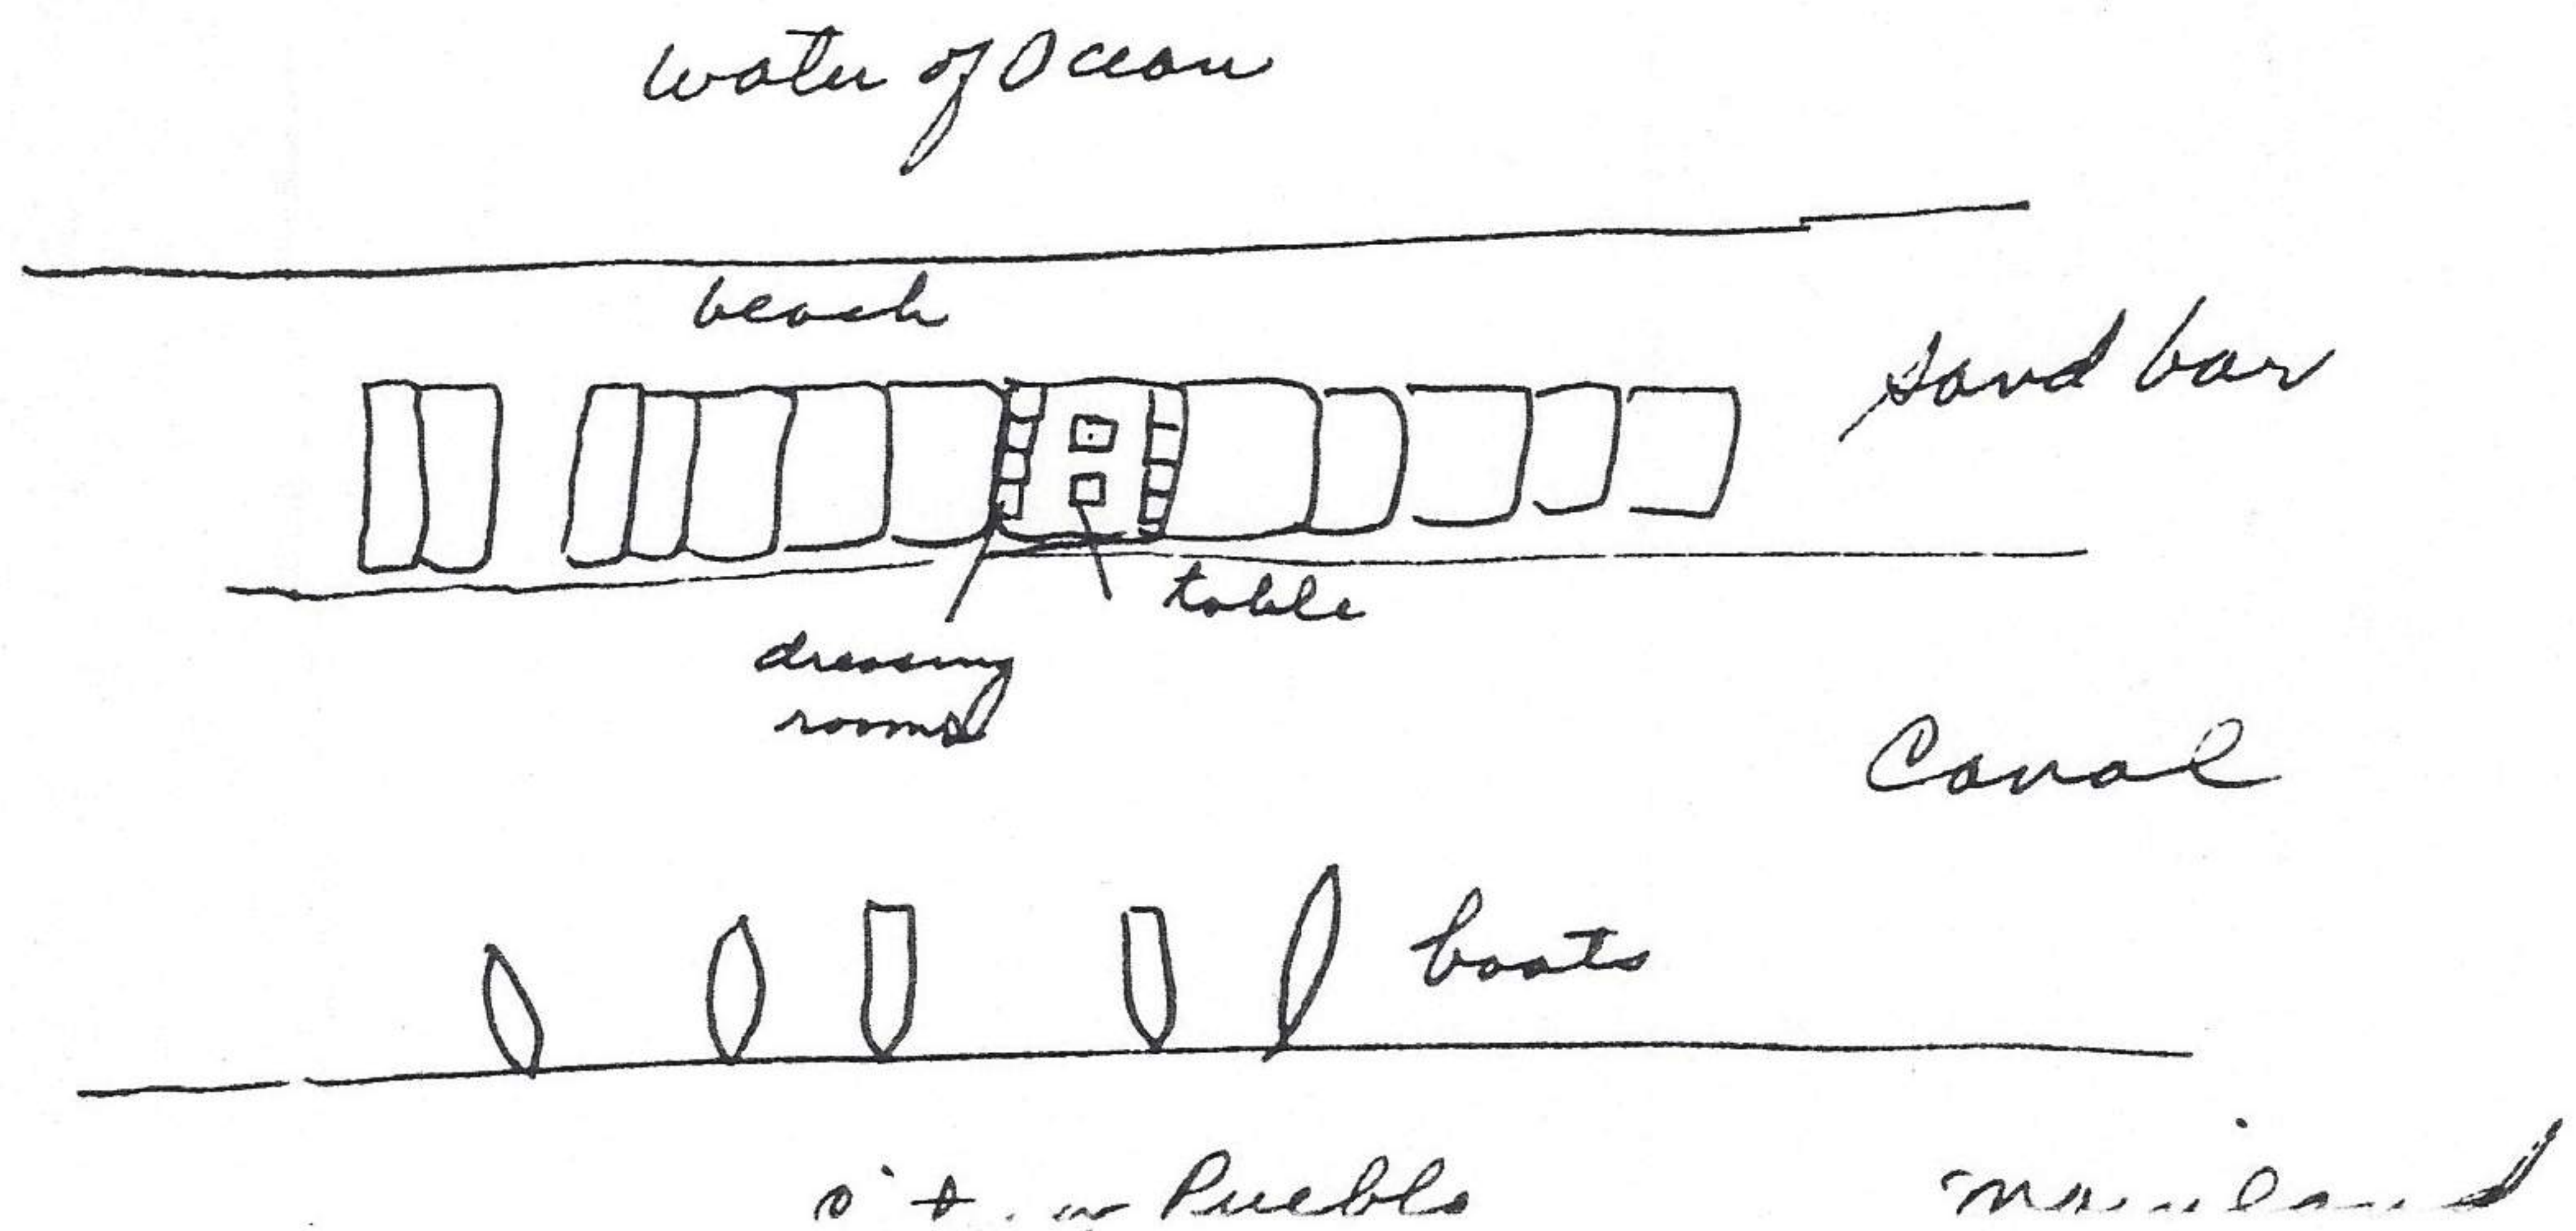 water of Ocean
beach
sand bar
table
dressing
rooms
Canal
boats
Pueblo
mainland